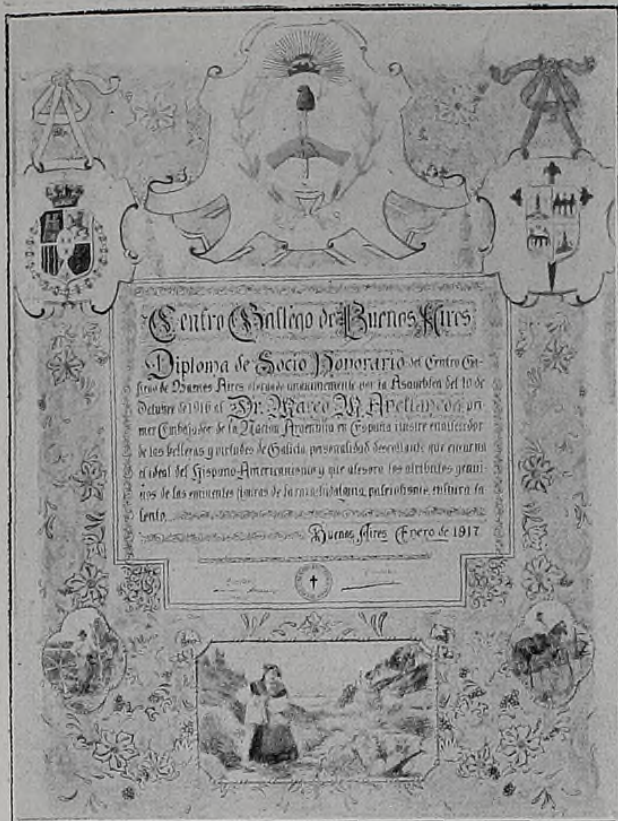 Centro Gallego de Buenos Aires
Diploma de Socio Honorario del Centro Ga-
llego de Buenos Aires otorgado unanimemente por la Asamblea del 10 de
Octubre de 1916 al Dr. Marco M. Avellaneda pri-
mer Embajador de la Nación Argentina en España ilustre enaltecedor
de las bellezas y virtudes de Galicia, personalidad descollante que encarna
el ideal del Hispano-Americanismo y que atesora los atributos genui-
nos de las eminentes figuras de la raza, hidalguia, patriotismo, cultura ta
lento
Buenos Aires Enero de 1917